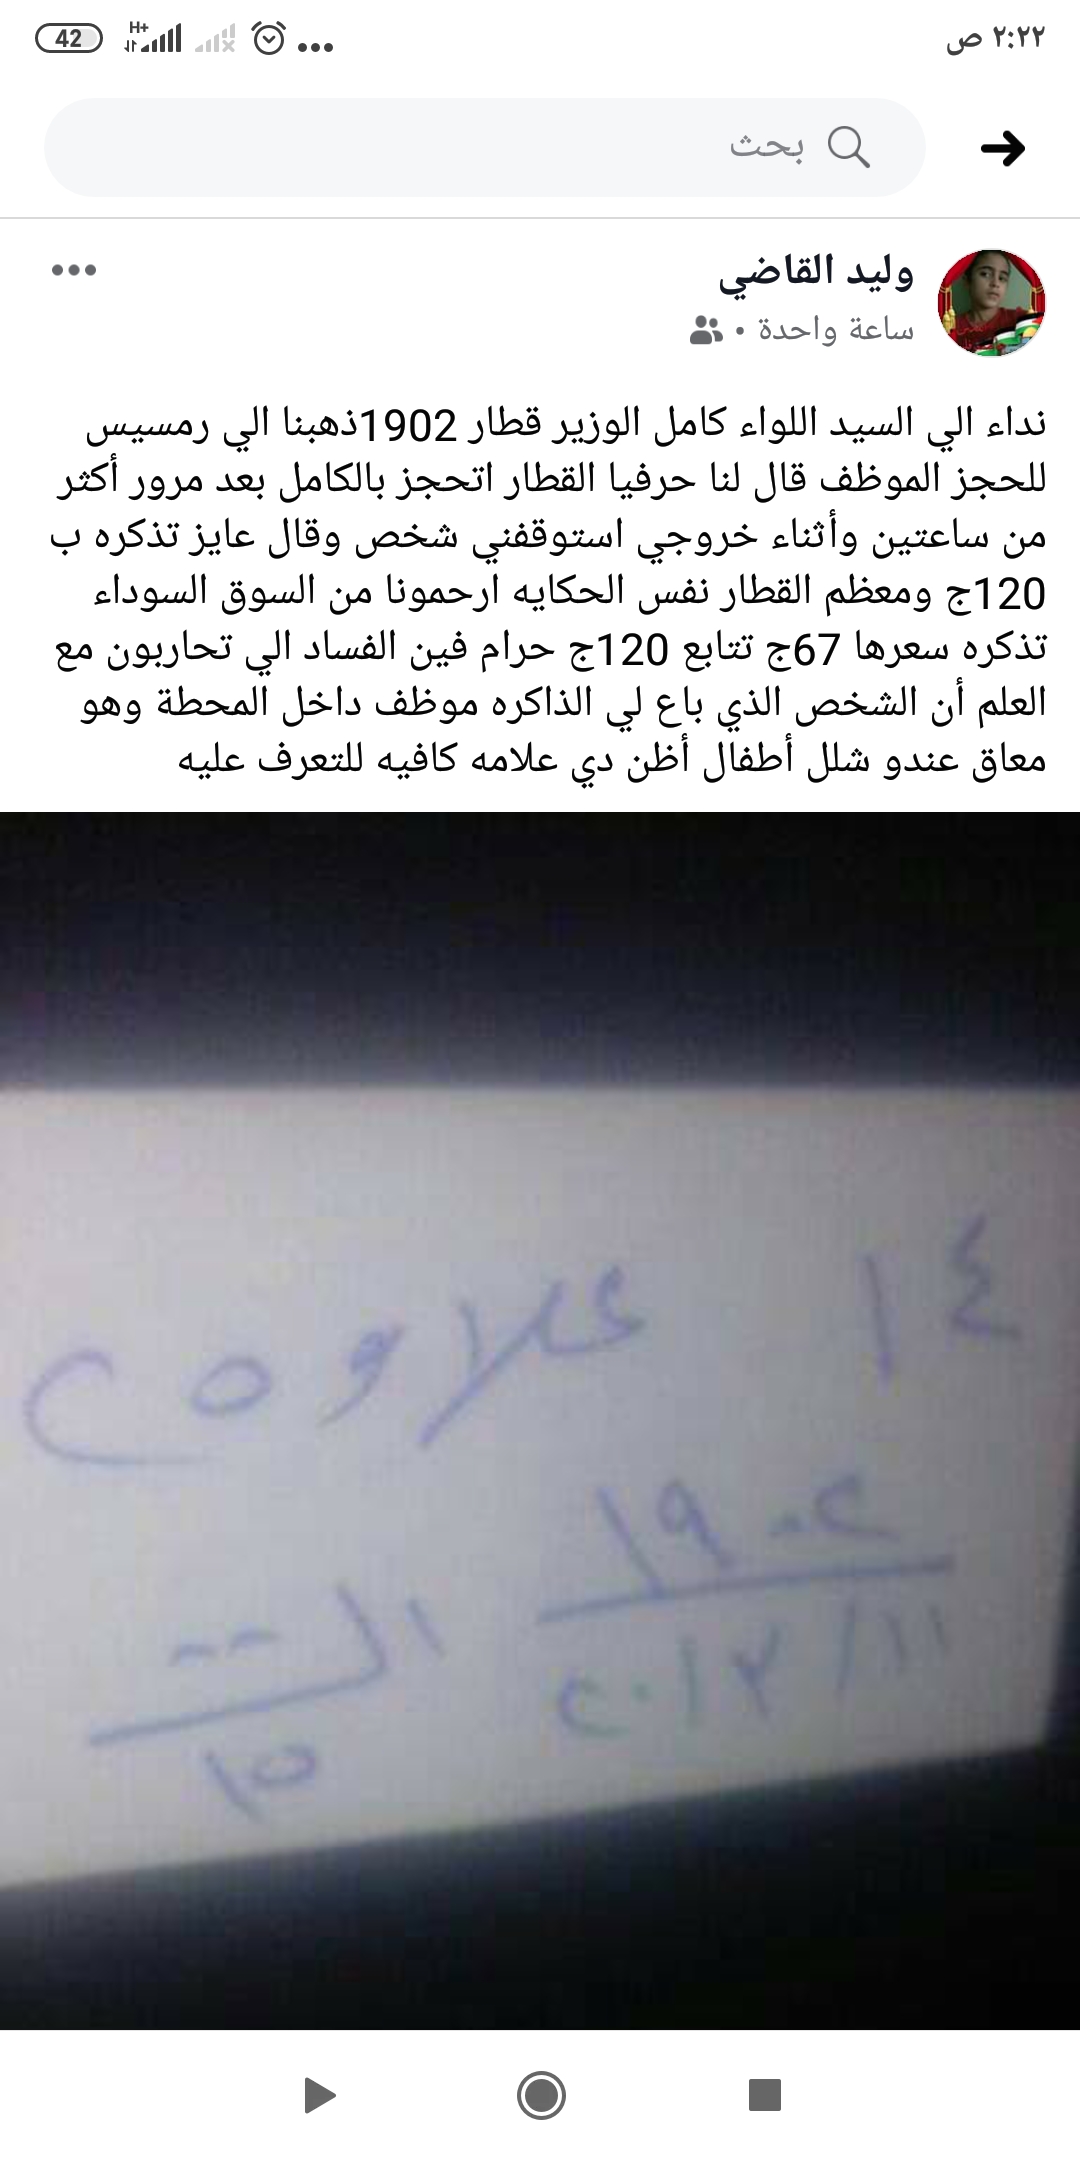 42 H+ ٢:٢٢ ص
بحث
وليد القاضي
ساعة واحدة •
نداء الي السيد اللواء كامل الوزير قطار 1902ذهبنا الي رمسيس
للحجز الموظف قال لنا حرفيا القطار اتحجز بالكامل بعد مرور أكثر
من ساعتين وأثناء خروجي استوقفني شخص وقال عايز تذكره ب
120ج ومعظم القطار نفس الحكايه ارحمونا من السوق السوداء
تذكره سعرها 67ج تتابع 120ج حرام فين الفساد الي تحاربون مع
العلم أن الشخص الذي باع لي الذاكره موظف داخل المحطة وهو
معاق عندو شلل أطفال أظن دي علامه كافيه للتعرف عليه
١٤
١٩٠٢